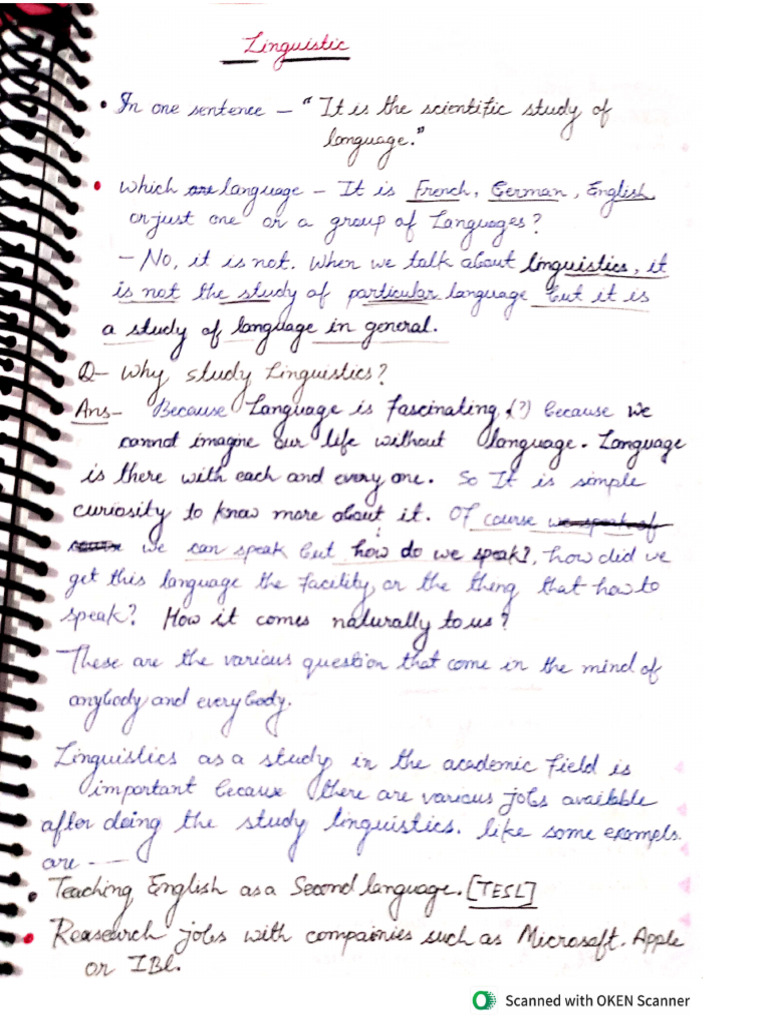 Linguistic
• In one sentence – "It is the scientific study of
language."
• Which are language – It is French, German, English
or just one or a group of Languages?
– No, it is not. When we talk about linguistics, it
is not the study of particular language but it is
a study of language in general.
Q– Why study Linguistics?
Ans– Because Language is fascinating, (?) because we
cannot imagine our life without language. Language
is there with each and every one. So It is simple
curiosity to know more about it. Of course we speak of
course we can speak but how do we speak?, how did we
get this language the facility, or the thing that how to
speak? How it comes naturally to us?
These are the various question that come in the mind of
anybody and everybody.
Linguistics as a study in the academic field is
important because there are various jobs available
after doing the study linguistics. like some exampls.
are ---
• Teaching English as a Second language. [TESL]
• Reasearch jobs with compainies such as Microsaft. Apple
or IBl.
Scanned with OKEN Scanner